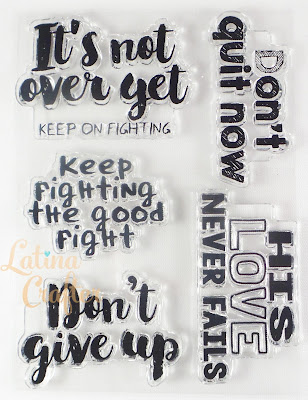 It's not
over yet
KEEP ON FIGHTING
Don't
quit now
Keep
fighting
the good
fight
Latina
Crafter
Don't
give up
HIS
LOVE
NEVER FAILS